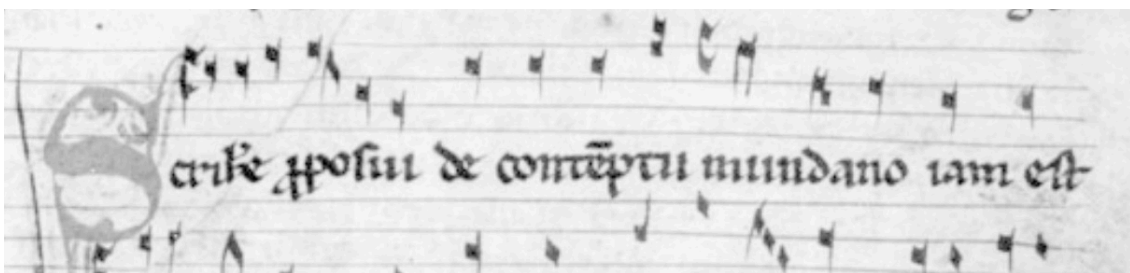 Scribe ꝓposui de contēptu mundano iam est